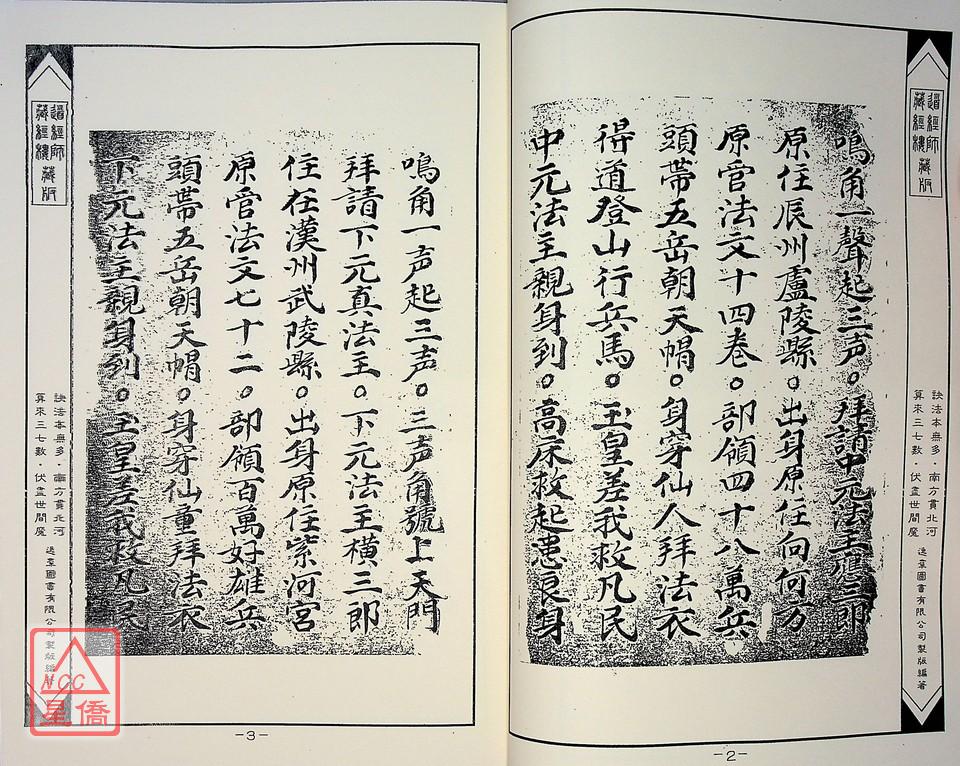 鳴角一聲起三声。拜請中元法主應三郎
原住辰州盧陵縣。出身原住向何方
原官法文十四卷。部領四十八萬兵
頭帶五岳朝天帽。身穿仙人拜法衣
得道登山行兵馬。玉皇差我救凡民
中元法主親身到。高床救起患良身
道經師
藏經樓藏版
訣法本無多．南方貫北河
算來三七數．伏盡世間魔
逸羣圖書有限公司製版編著
-2-
鳴角一声起三声。三声角號上天門
拜請下元真法主。下元法主橫三郎
住在漢州武陵縣。出身原住紫河宮
原管法文七十二。部領百萬好雄兵
頭帶五岳朝天帽。身穿仙童拜法衣
下元法主親身到。玉皇差我救凡民
道經師
藏經樓藏版
訣法本無多．南方貫北河
算來三七數．伏盡世間魔
逸羣圖書有限公司製版編著
-3-
NCC
星僑